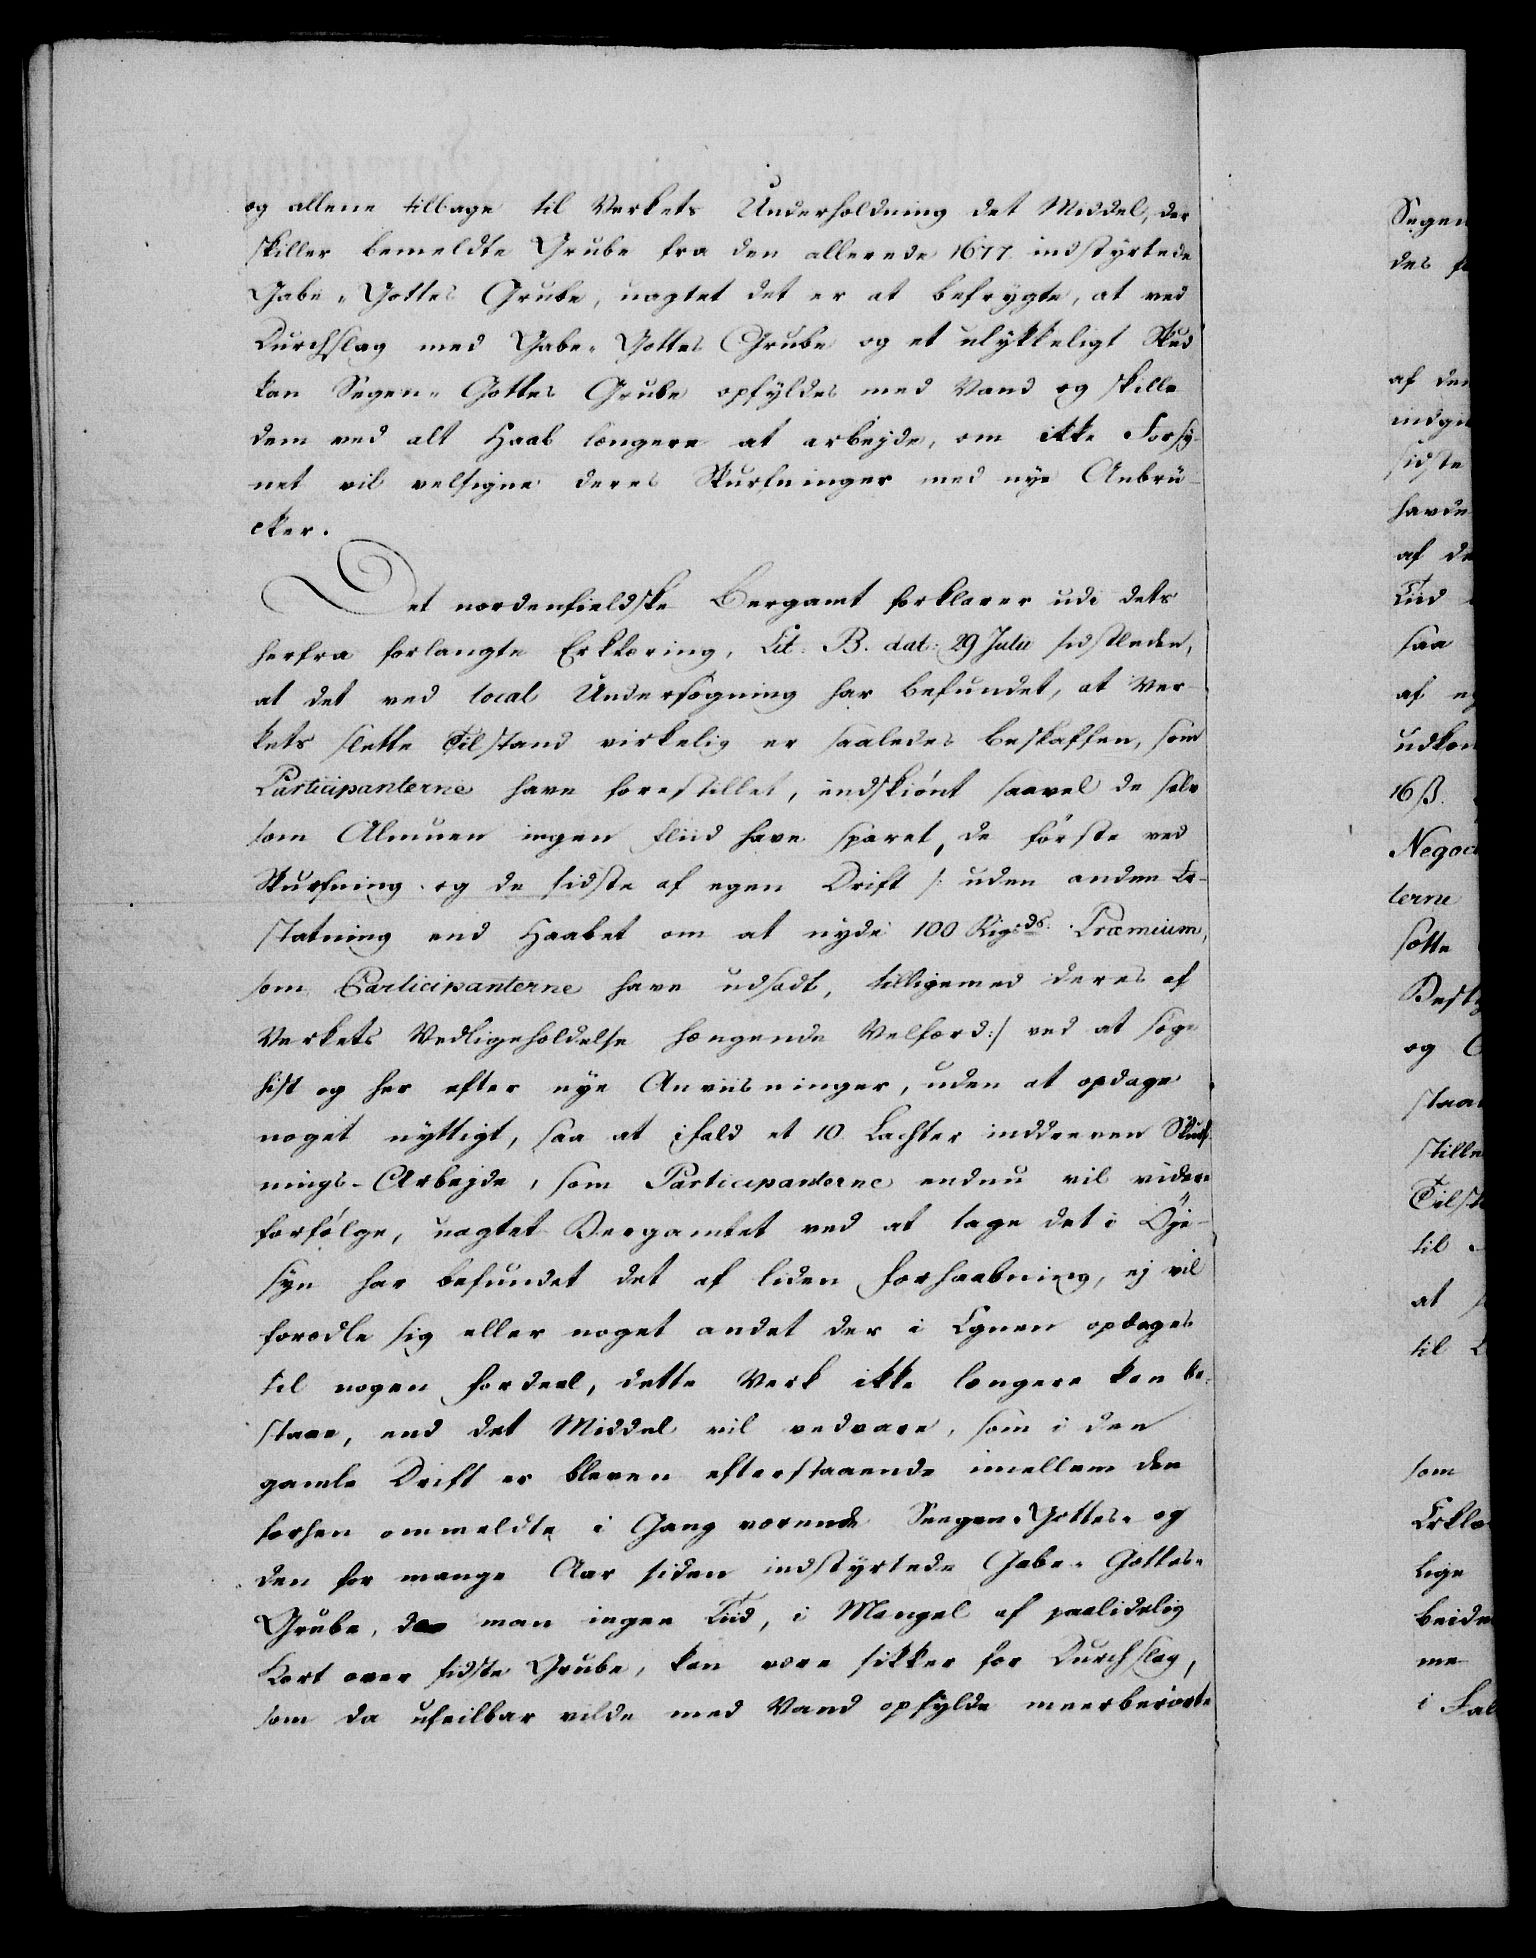 og allene tilbage til Verkets Underholdning det Middel, der
skiller bemeldte Grube fra den allerede 1677 indstyrtede
Gabe-Gottes Grube, uagtet det er at befrygte, at ved
Durchslag med Gabe-Gottes Grube og et ulykkeligt Skud
kan Segen-Gottes Grube opfyldes med Vand og skille
dem ved alt Haab længere at arbejde, om ikke Forsy-
net vil velsigne deres Skurfninger med nye Anbrü-
cker.
Det nordenfieldske Bergamt forklarer udi dets
herfra forlangte Erklæring, Lit: B. dat: 29 Julii sidstleden,
at det ved local Undersøgning har befundet, at Ver-
kets slette Tilstand virkelig er saaledes beskaffen, som
Participanterne have forestillet, endskiönt saavel de selv
som Almuen ingen Fliid have sparet, de förste ved
Skurfning og de sidste af egen Drift /: uden anden Er-
statning end Haabet om at nyde 100 Rigsds. Præmium,
som Participanterne have udsadt, tilligemed deres af
Verkets Vedligeholdelse hængende Velfærd:/ ved at søge
hist og her efter nye Anviisninger, uden at opdage
noget nyttigt, saa at ifald et 10 Lachter inddreven Skurf-
nings-Arbejde, som Participanterne endnu vil videre
forfølge, uagtet Bergamtet ved at tage det i Öje-
syn har befundet det af liden Forhaabning, ej vil
forædle sig eller noget andet der i Egnen opdages
til nogen Fordeel, dette Verk ikke længere kan be-
staae, end det Middel vil vedvare, som i den
gamle Drift er bleven efterstaaende imellem den
forhen ommeldte i Gang værende Seegen-Gottes- og
den for mange Aar siden indstyrtede Gabe-Gottes-
Grube, da man ingen Tiid, i Mangel af paalidelig
Kort over sidste Grube, kan være sikker for Durchslag,
som da ufeilbar vilde med Vand opfylde meerberörte
Segen
des
af den
sidste
havde
af de
Tiid
saa
af
16 ß.
Negoci
terne
sætte
og
staa
Tilst
til
at
til
som
Erklæ
lige
me
i Fal